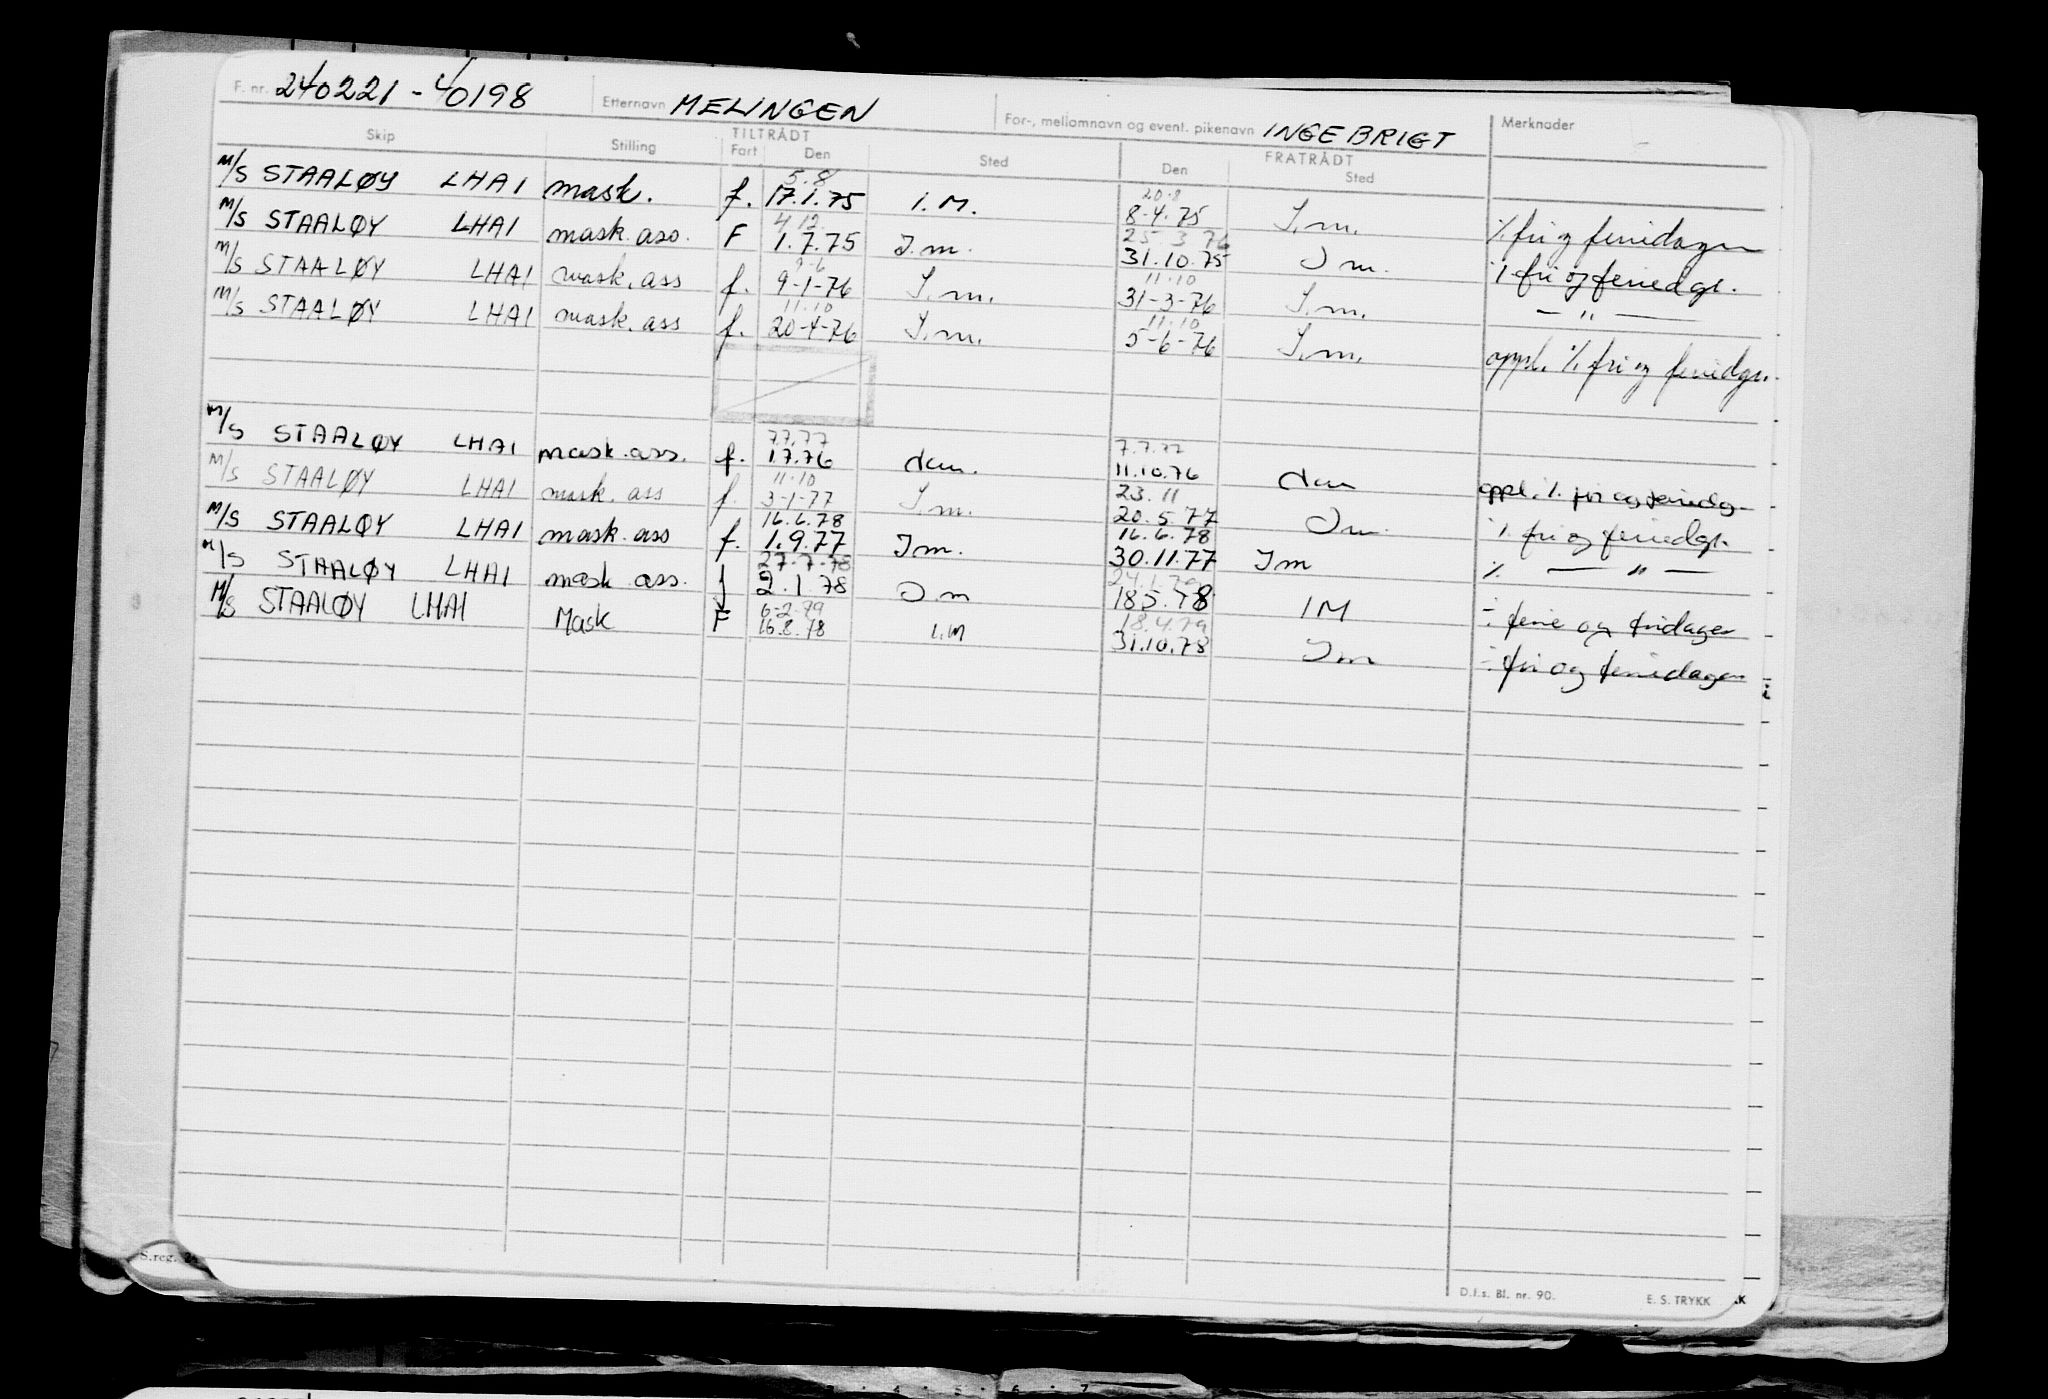 F. nr. 240221-40198 Etternavn MELINGEN For-, mellomnavn og event. pikenavn INGEBRIGT Merknader
TILTRÅDT FRATRÅDT
Skip Stilling Fart Den Sted Den Sted
5.8 20.8
M/S STAALØY LHAI mask. f. 17.1.75 I.M. 8-4.75 I.m. % fri og feriedager
4.12 25.3.76
M/S STAALØY LHAI mask.ass. F 1.7.75 I.m. 31.10.75 I m. % fri og feriedgr.
9-6 11.10
M/S STAALØY LHAI mask.ass f. 9-1-76 I.m. 31-3-76 I.m. — " —
11.10 11.10
M/S STAALØY LHAI mask.ass f. 20-4-76 I.m. 5-6-76 I.m. oppl. % fri og feriedgr.
7.7.77 7.7.77
M/S STAALØY LHAI mask.ass. f. 1.7.76 11.10.76 oppl. % fri og feriedg.
11.10 23.11
M/S STAALØY LHAI mask.ass f. 3-1-77 I.m. 20.5.77 I m. % fri og feriedgr.
16.6.78 16.6.78
M/S STAALØY LHAI mask.ass f. 1.9.77 I m. 30.11.77 I m % — " —
27-7-78 24.1.79
M/S STAALØY LHAI mask ass. f 2.1.78 I.m 18.5.78 IM ÷ ferie og fridager
6-2.79 18.4.79
M/S STAALØY LHAI Mask F 16.8.78 I.M 31.10.78 I m ÷ fri og feriedager
S.reg.
D.f.s. Bl. nr. 90. E. S. TRYKK